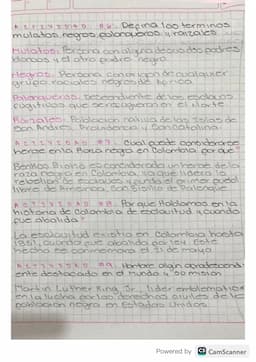 ACTIVIDAD #6. Defina los terminos
mulatos, negros, palenqueros y raizales
Mulatos: Persona con alguna de sus dos padres
blancos y el otro padre negro.
Negros: Persona con origen de cualquier
grupo negro de Africa.
Palenqueros: Descendiente de los esclavos
fugitivos que se refugieron en el Norte
Raizales: Poblacion nativa de las Islas de
San Andres, Providencia y Santa Catalina.
ACTIVIDAD #7. Cual puede considerarse
heroe en la Raza negra en Colombia por que
Benkos Bioho es considerado un heroe de la
raza negra en Colombia, ya que lidero la
rebelion de esclavos y fundo el primer pueblo
libre de America, San Basilio de Palenque
ACTIVIDAD #8. Por que Hablamos en la
historia de Colombia de esclavitud y cuando
fue abolida
La esclavitud existia en Colombia hasta
1851, cuando fue abolida por ley. Este
hecho se conmemora el 21 de mayo
ACTIVIDAD #9. Nombre algun afrodescendi
ente destacado en el mundo y su mision
Martin Luther King Jr., lider emblematico
en la lucha por los derechos civiles de la
poblacion negra en Estados Unidos.
Powered by CS CamScanner